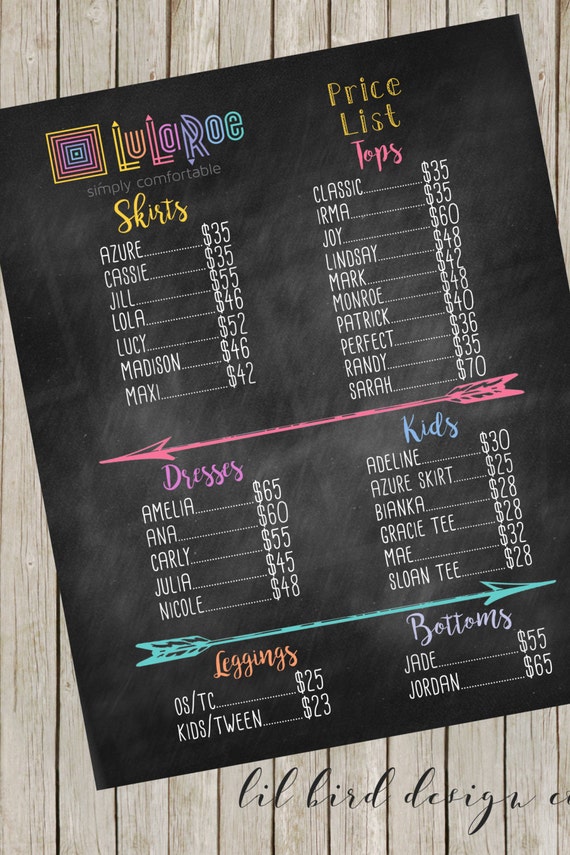 LuLaRoe
simply comfortable
Price
List
Skirts
AZURE..............$35
CASSIE..............$35
JILL..............$55
LOLA..............$46
LUCY..............$52
MADISON..............$46
MAXI..............$42
Tops
CLASSIC..............$35
IRMA..............$35
JOY..............$60
LINDSAY..............$48
MARK..............$42
MONROE..............$48
PATRICK..............$40
PERFECT..............$36
RANDY..............$35
SARAH..............$70
Dresses
AMELIA..............$65
ANA..............$60
CARLY..............$55
JULIA..............$45
NICOLE..............$48
Kids
ADELINE..............$30
AZURE SKIRT..............$25
BIANKA..............$28
GRACIE TEE..............$28
MAE..............$32
SLOAN TEE..............$28
Leggings
OS/TC..............$25
KIDS/TWEEN..............$23
Bottoms
JADE..............$55
JORDAN..............$65
lil bird design